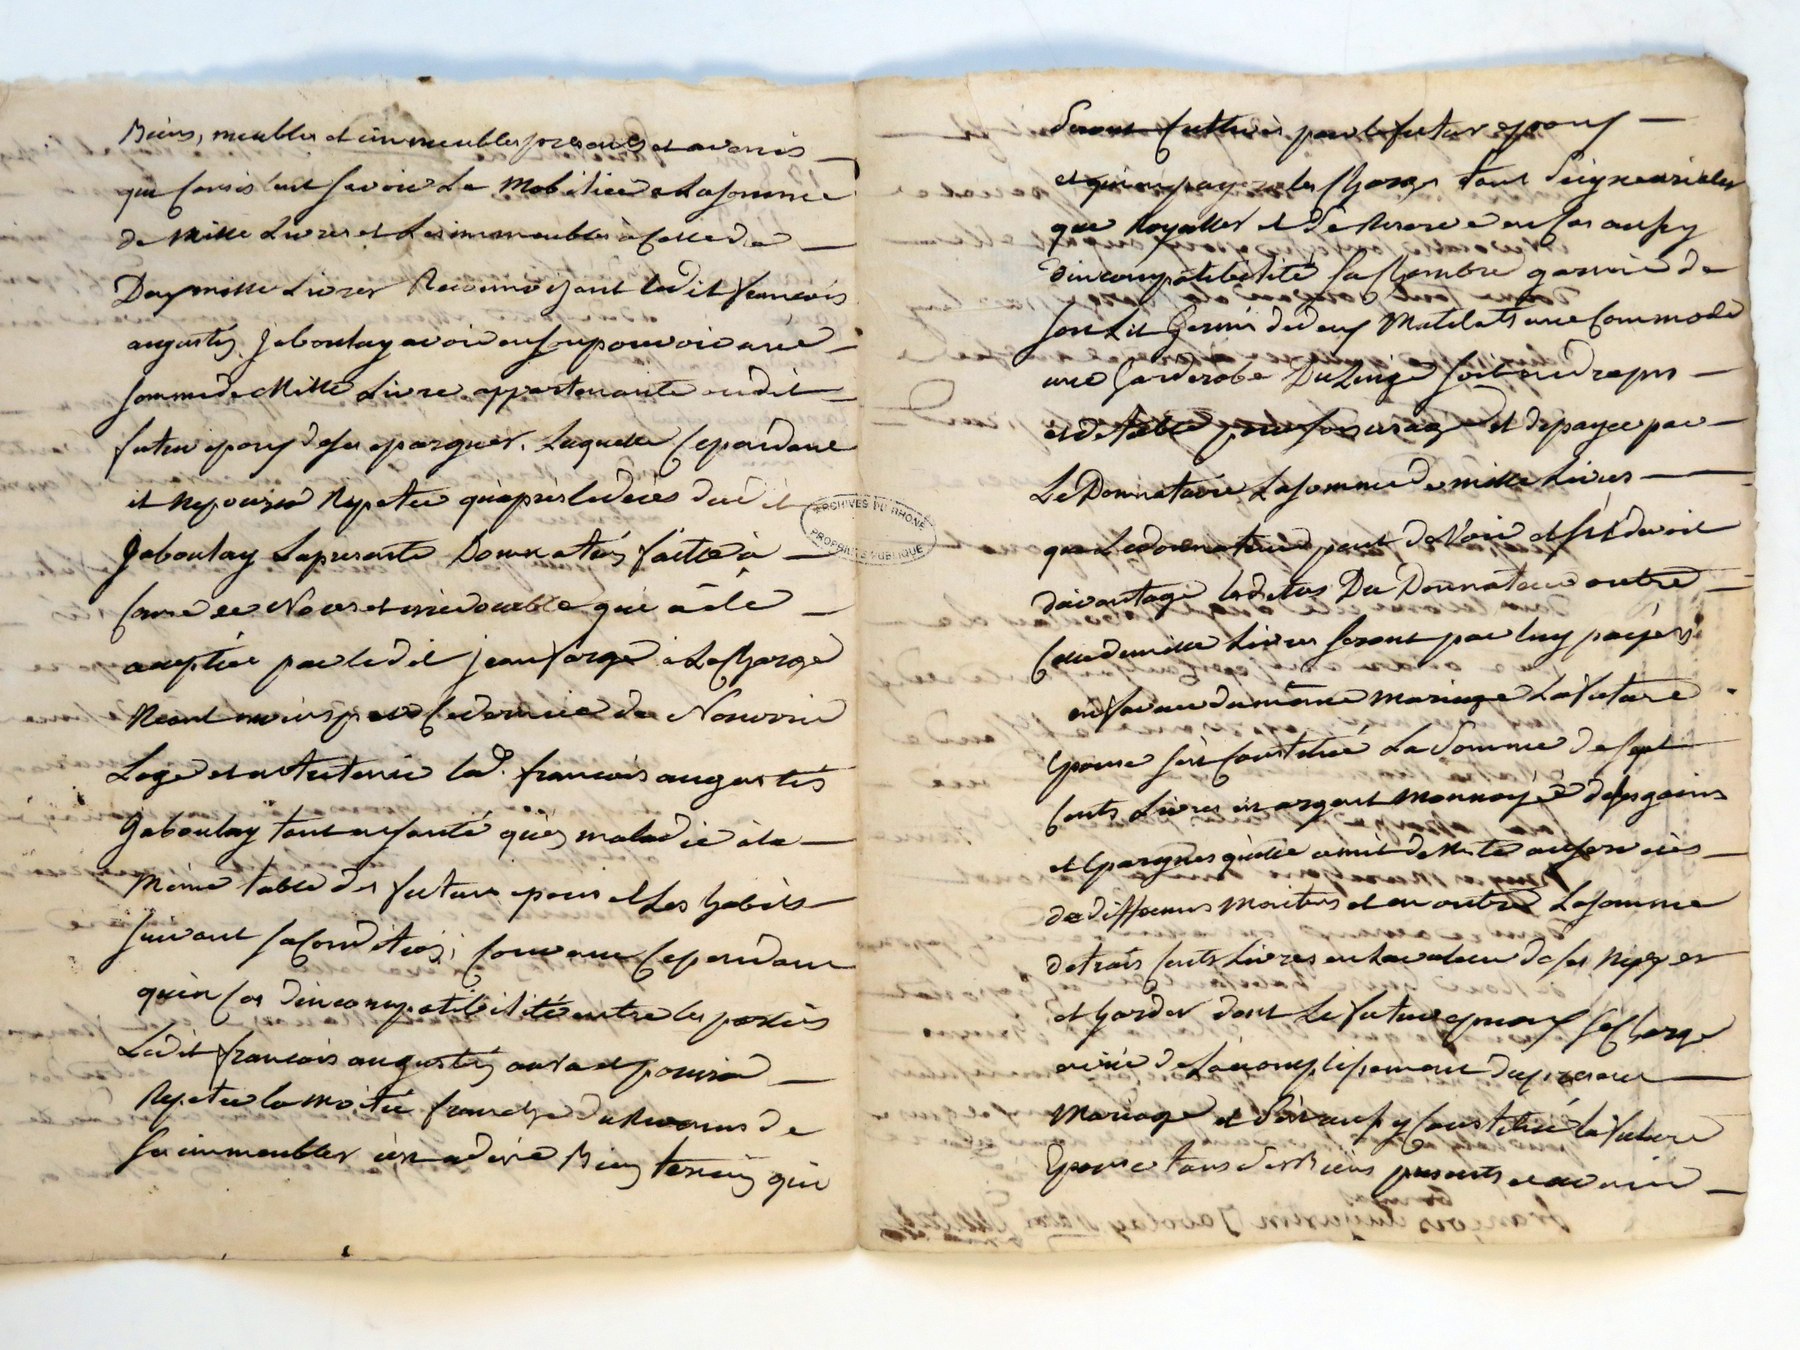 Biens, meubles et immeubles presents et avenir
qui consistent savoir Le Mobilier a La somme
de Mille Livres et Les immeubles à Celle de
Deux mille Livres Reconnoissant Ledit françois
augustin Jaboulay avoir en son pouvoir une
somme de Mille Livre appartenante audit
futur epoux de ses epargnes, Laquelle Cependant
il ne pourra Repeter qu'après le décès dudit
Jaboulay La presente Donnation faitte à
Cause de Noces et irrevocable qui à été
acceptée par ledit jean forge à La Charge
Neant moins par Ce dernier de Nourrir
Loger et entretenir led. françois augustin
Jaboulay tant en santé qu'en maladie à la
même table des futurs epoux et Les habits
suivant sa Condition; Convenu Cependant
qu'en Cas d'incompatibilité entre les parties
Ledit françois augustin aura et pourra
Repeter la moitié franche du Revenus de
ses immeubles c'est a dire Bien terein qui
seront Cultivés par le futur epoux
et qui en payera les Charges tant Seigneurialles
que Royalles et se Reserve en Cas aussy
d'incompatibilité sa Chambre garnie de
son Lit Garni de deux Matelats une Commode
une Garderobe Du Linge soit en draps
et de table pour son usage et de payer par
Le Donnataire La somme de mille Livres
que Le donnateur peut devoir et s'il devoit
davantage les dettes Du Donnateur outre
Celle de mille Livres seront par luy payées
en faveur du même mariage La future
Epouse s'est Constitué La Somme de sept
Cents Livres en argent monnoyé de ses gains
et Epargnes qu'elle a mit de Coté au service
de differents maitres et en outre La somme
de trois Cents Livres en La valeur de ses nippes
et hardes dont Le futur epoux se Charge
avant L'accomplissement du present
mariage et S'est aussy Constitué la future
Epouse tous ses Biens presents et avenir
ARCHIVES DU RHÔNE
PROPRIÉTÉ PUBLIQUE